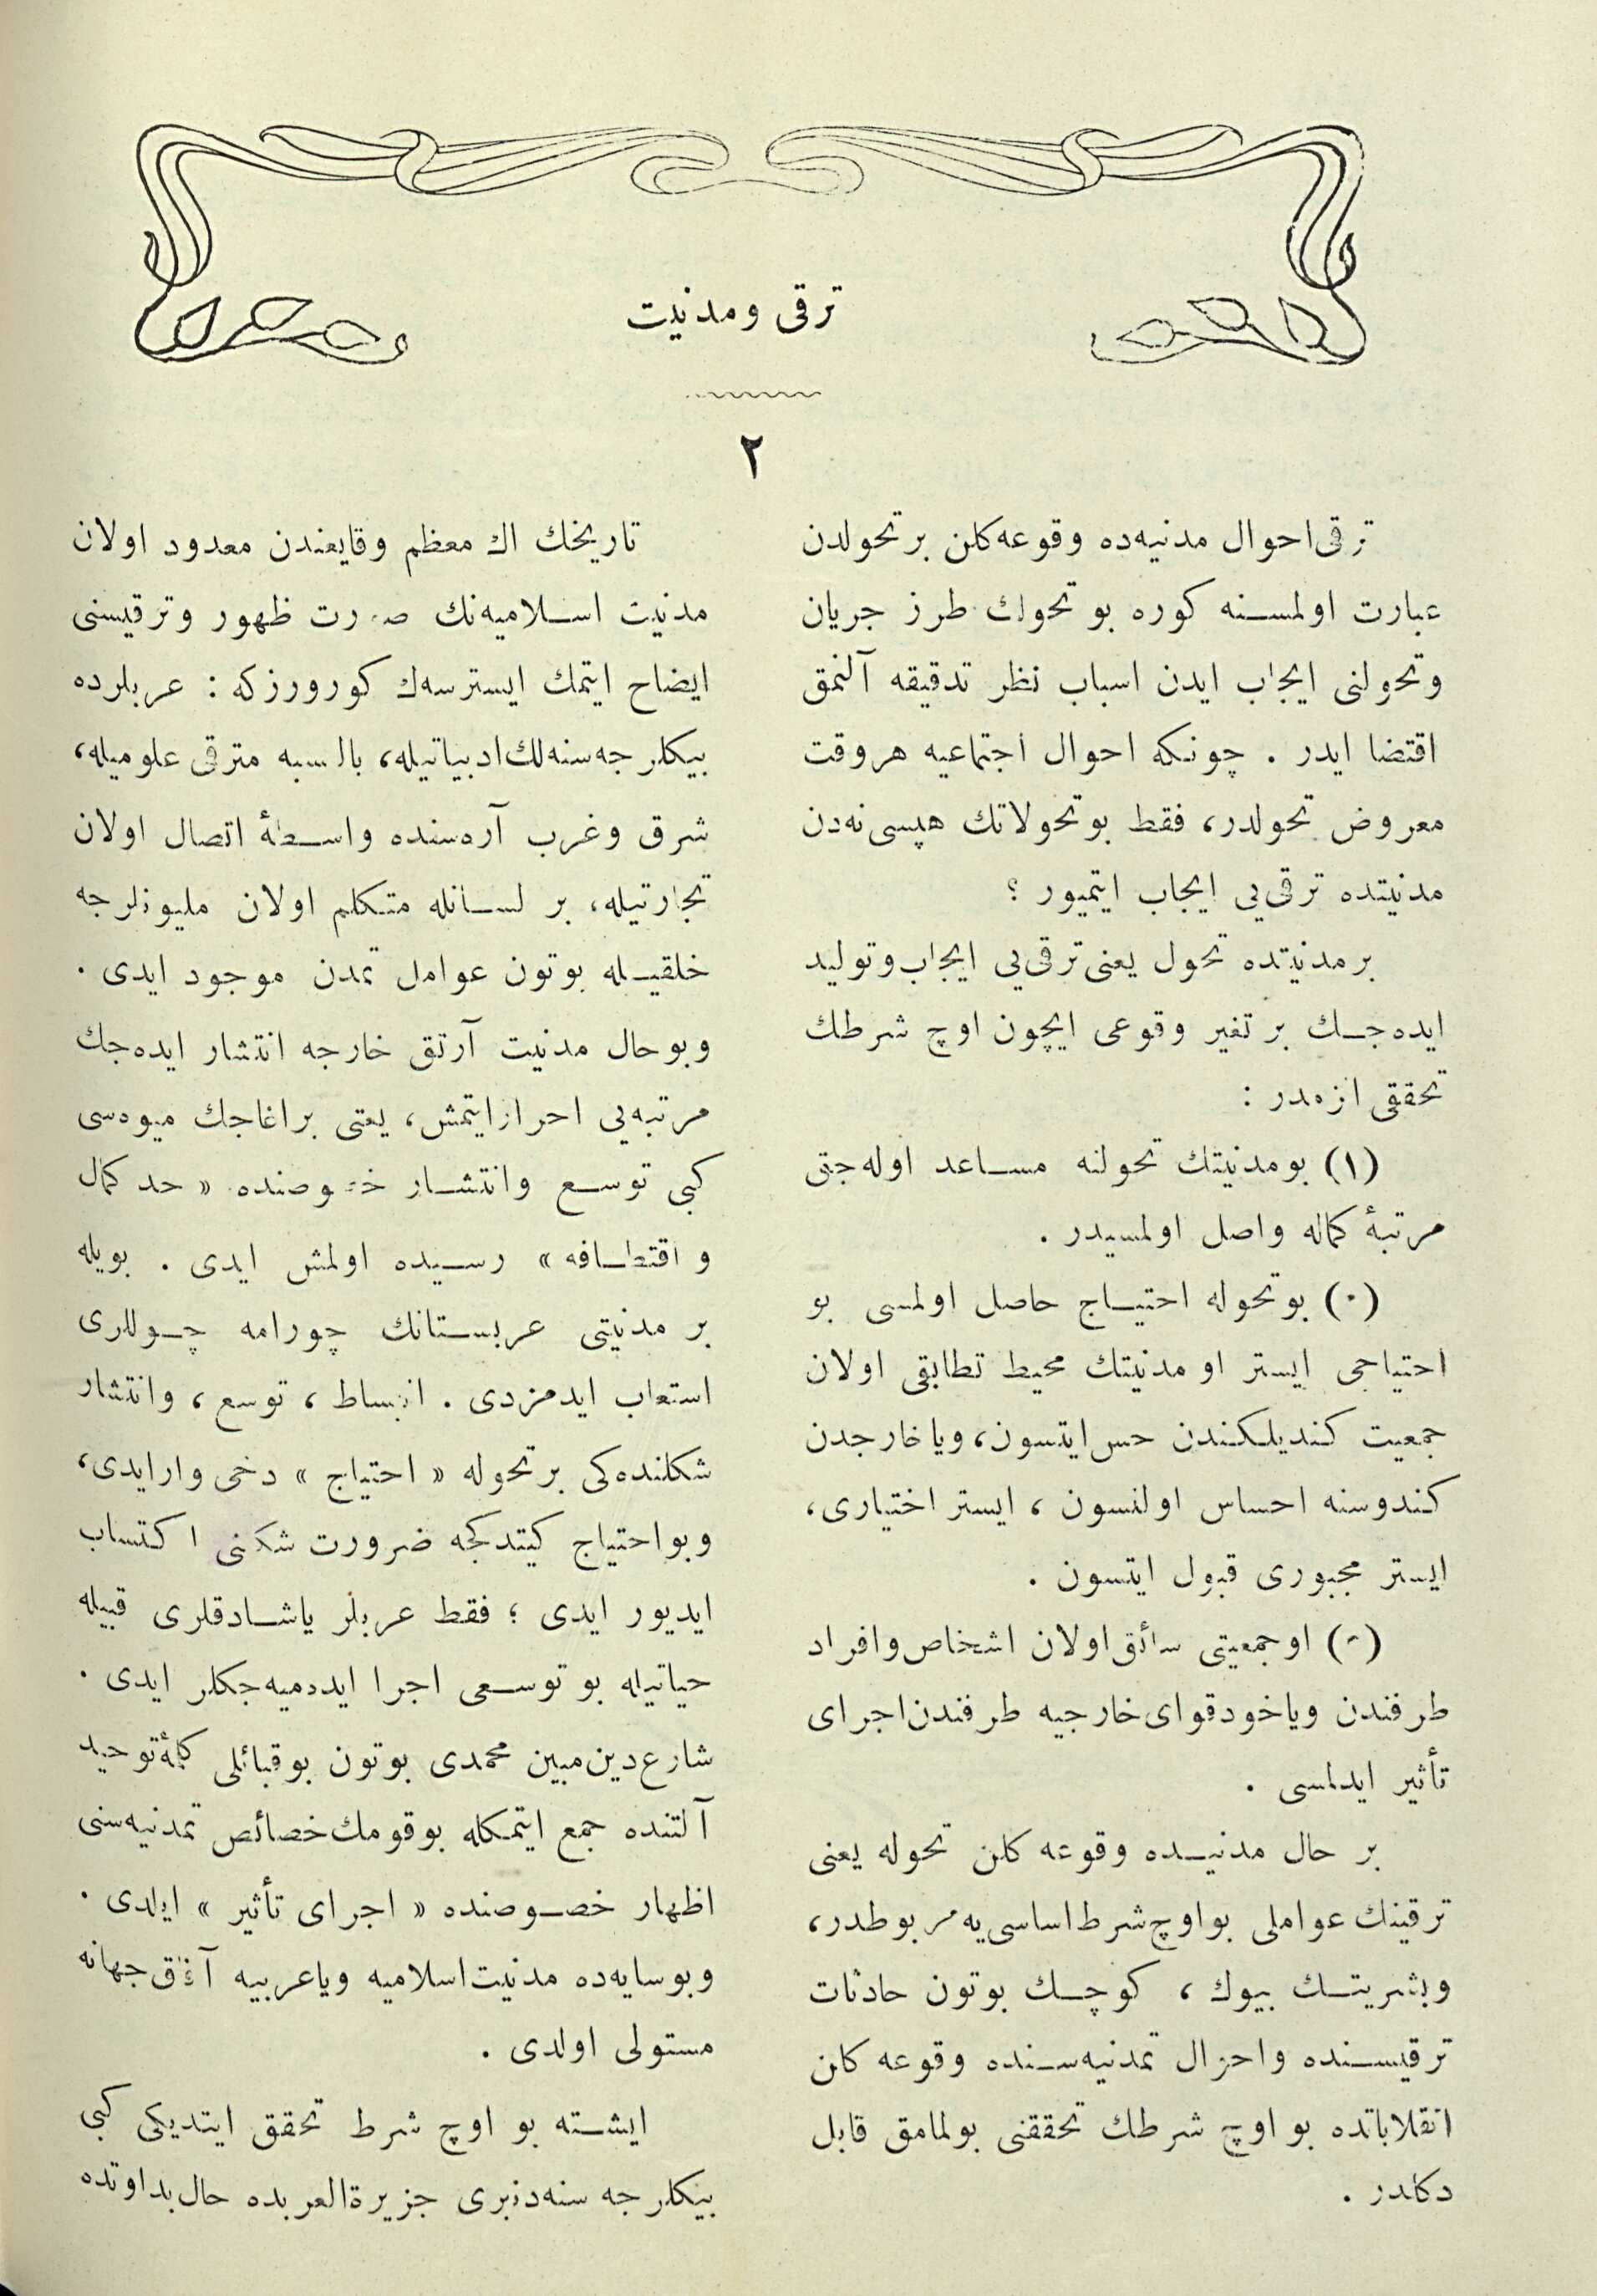 ترقی ومدنیت
٢
ترقی احوال مدنیه‌ده وقوعه کلن بر تحولدن
عبارت اولمسـنه کوره بو تحولك طرز جریان
وتحولنی ایجاب ایدن اسباب نظر تدقیقه آلنمق
اقتضا ایدر . چونکه احوال اجتماعیه هر وقت
معروض تحولدر، فقط بو تحولاتك هپسی نه‌دن
مدنیتده ترقی‌یی ایجاب ایتمیور ؟
بر مدنیتده تحول یعنی ترقی‌یی ایجاب و تولید
ایده جـك بر تغیر وقوعی ایچون اوچ شرطك
تحققی لازمدر :
(١) بو مدنیتك تحولنه مسـاعد اوله جق
مرتبۀ کماله واصل اولمسیدر .
(٢) بو تحوله احتیـاج حاصل اولمسی بو
احتیاجی ایستر او مدنیتك محیط تطابقی اولان
جمعیت کندیلکندن حس ایتسون، ویا خارجدن
کندوسنه احساس اولنسون ، ایستر اختیاری،
ایستر مجبوری قبول ایتسون .
(٣) او جمعیتی سائق اولان اشخاص وافراد
طرفندن ویاخود قوای خارجیه طرفندن اجرای
تأثیر ایدلمسی .
بر حال مدنیـده وقوعه کلن تحوله یعنی
ترقینك عواملی بو اوچ شرط اساسی‌یه مربوطدر،
وبشریتـك بیوك ، کوچـك بوتون حادثات
ترقیسـنده واحوال تمدنیه‌سـنده وقوعه کلن
انقلاباتده بو اوچ شرطك تحققنی بولمامق قابل
دکلدر .
تاریخك اك معظم وقایعندن معدود اولان
مدنیت اسـلامیه‌نك صورت ظهور وترقیسنی
ایضاح ایتمك ایسترسه‌ك کورورزکه : عربلرده
بیکلرجه سنه‌لك ادبیاتیله، بالنسبه مترقی علومیله،
شرق وغرب آره‌سنده واسـطۀ اتصال اولان
تجارتیله، بر لسـانله متکلم اولان ملیونلرجه
خلقیـله بوتون عوامل تمدن موجود ایدی .
وبو حال مدنیت آرتق خارجه انتشار ایده‌جك
مرتبه‌یی احراز ایتمش، یعنی بر اغاجك میوه‌سی
کبی توسـع وانتشـار خصوصنده « حد کمال
و اقتطـافه » رسـیده اولمش ایدی . بویله
بر مدنیتی عربسـتانك چورامه چـوللری
استعاب ایدمزدی . انبساط ، توسع ، وانتشار
شکلنده‌کی بر تحوله « احتیاج » دخی وار ایدی،
وبو احتیاج کیتدکجه ضرورت شکلنی اکتساب
ایدیور ایدی ؛ فقط عربلر یاشـادقلری قبیله
حیاتیله بو توسـعی اجرا ایده‌میه جکلر ایدی .
شارع دین مبین محمدی بوتون بو قبائلی کلۀ توحید
آلتنده جمع ایتمکله بو قومك خصائص تمدنیه‌سنی
اظهار خصـوصنده « اجرای تأثیر » ایلدی .
وبو سایه‌ده مدنیت اسلامیه ویا عربیه آفاق جهانه
مستولی اولدی .
ایشـته بو اوچ شرط تحقق ایتدیکی کبی
بیکلرجه سنه‌دنبری جزیرة العربده حال بداوتده